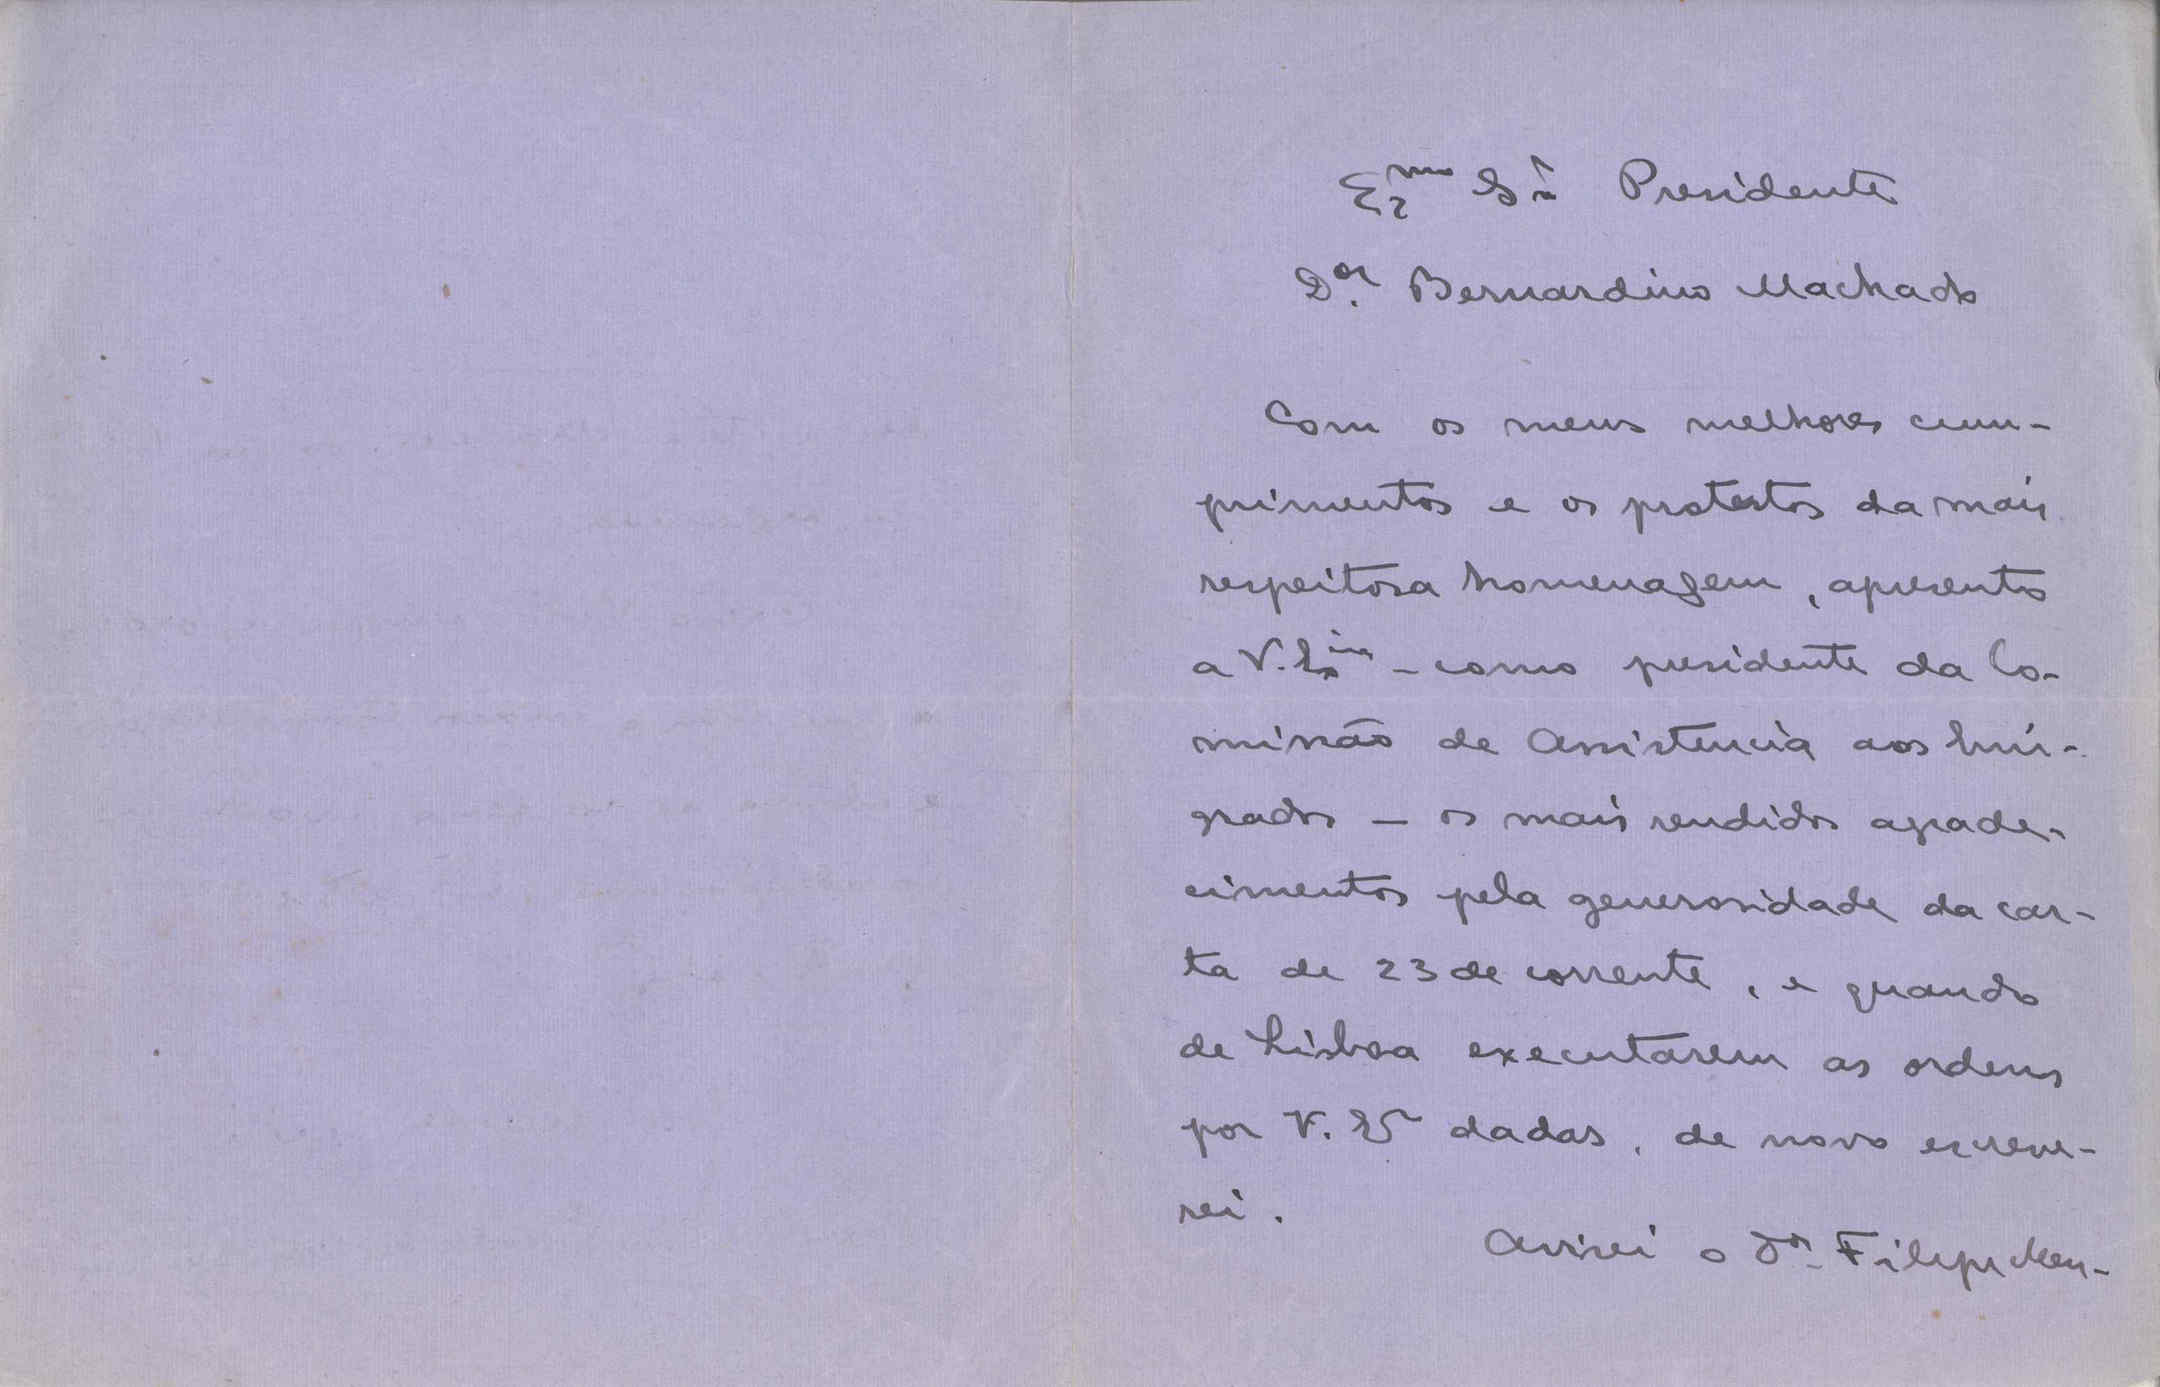 Exmo Sr Presidente
Dor. Bernardino Machado
Com os meus melhores cum-
primentos e os protestos da mais
respeitosa homenagem, apresento
a V. Exia - como presidente da Co-
missão de Assistencia aos Emi-
grados - os mais rendidos agrade-
cimentos pela generosidade da car-
ta de 23 de corrente, e quando
de Lisboa executarem as ordens
por V. Exa dadas, de novo escreve-
rei.
Avisei o Dor. Filipe Men-